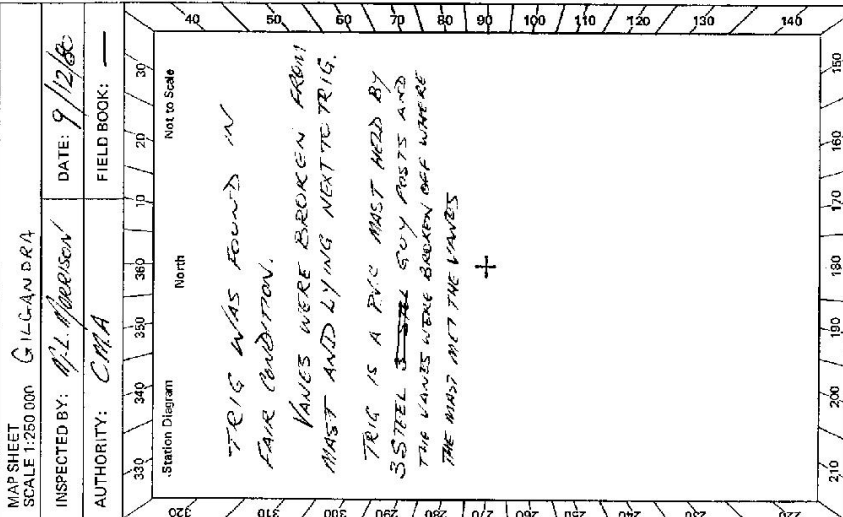 MAP SHEET
SCALE 1:250 000 GILGANDRA
INSPECTED BY: M.L. MORRISON DATE: 9/12/80
AUTHORITY: CMA FIELD BOOK: —
Station Diagram North Not to Scale
330 340 350 360 10 20 30
40 50 60 70 80 90 100 110 120 130 140
150 160 170 180 190 200 210
220 230 240 250 260 270 280 290 300 310 320
TRIG WAS FOUND IN
FAIR CONDITION.
VANES WERE BROKEN FROM
MAST AND LYING NEXT TO TRIG.
TRIG IS A PVC MAST HELD BY
3 STEEL GUY POSTS AND
THE VANES WERE BROKEN OFF WHERE
THE MAST MET THE VANES